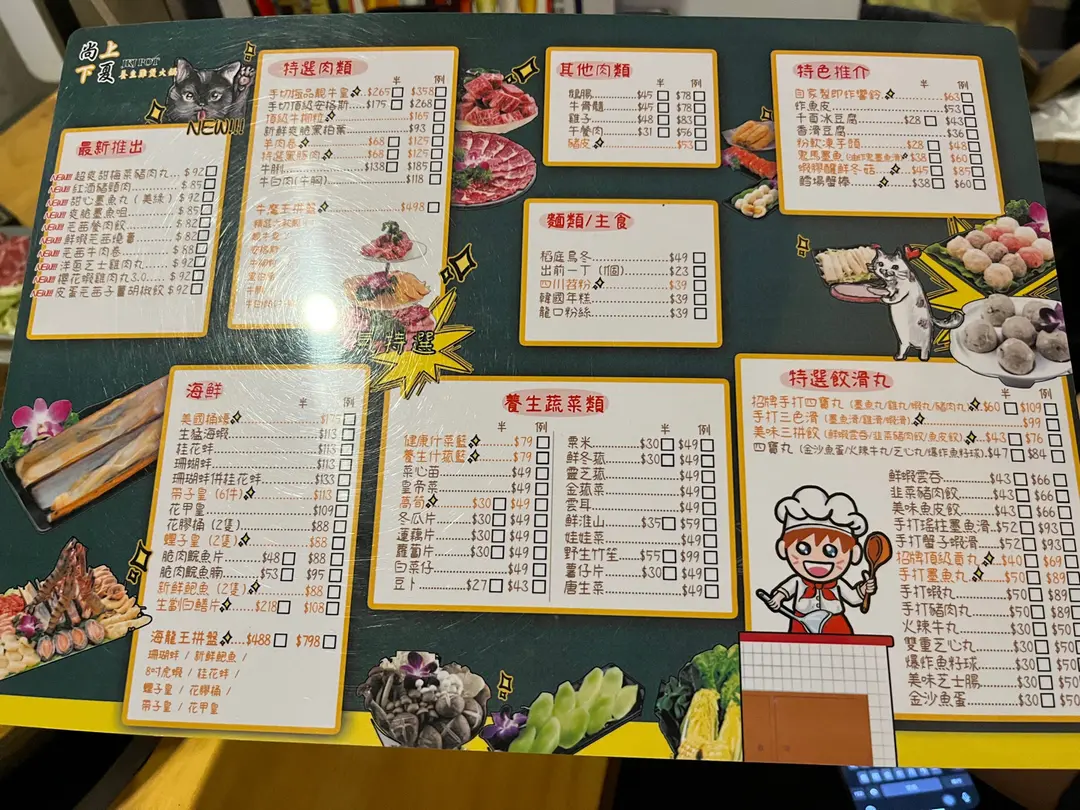 尚上
下夏
JKJ POT
養生雞煲火鍋
NEW!!!
最新推出
NEW!!! 超爽甜梅菜豬肉丸...$92
NEW!!! 紅酒豬頸肉...$85
NEW!!! 甜心墨魚丸(美綠)$92
NEW!!! 爽脆墨魚咀...$85
NEW!!! 芫茜餃肉餃...$82
NEW!!! 鮮蝦芫茜燒賣...$82
NEW!!! 芫茜牛肉卷...$88
NEW!!! 洋蔥芝士雞肉丸...$92
NEW!!! 櫻花蝦雞肉丸3.0...$92
NEW!!! 皮蛋芫茜子薑胡椒餃$92
特選肉類
半 例
手切極品肥牛皇...$265 $358
手切頂級安格斯...$175 $268
頂級牛柳粒...$165
新鮮爽脆黑柏葉...$93
羊肉卷...$68 $125
特選黑豚肉...$68 $125
牛脷...$138 $185
牛白肉(牛胸)...$118
牛魔王拼盤...$498
豆特選
其他肉類
半 例
鵝腸...$45 $78
牛骨髓...$45 $78
雞子...$48 $83
午餐肉...$31 $56
豬皮...$53
特色推介
半 例
自家製即炸響鈴...$63
炸魚皮...$53
千頁冰豆腐...$28 $43
香滑豆腐...$36
粉軟凍手頭...$28 $48
鬼馬墨魚(油炸鬼墨魚滑)$38 $60
蝦膠釀鮮冬菇...$45 $85
鱈場蟹棒...$38 $60
麵類/主食
稻庭烏冬...$49
出前一丁(1個)...$23
四川苕粉...$39
韓國年糕...$39
龍口粉絲...$39
海鮮
半 例
美國桶蠔...$175
生猛海蝦...$113
桂花蚌...$113
珊瑚蚌...$113
珊瑚蚌併桂花蚌...$133
帶子皇(6件)...$113
花甲皇...$109
花膠桶(2隻)...$88
螺子皇(2隻)...$88
脆肉鯇魚片...$48 $88
脆肉鯇魚腩...$53 $95
新鮮鮑魚(2隻)...$88
生劏白鱔片...$218 $108
海龍王拼盤...$488 $798
珊瑚蚌 / 新鮮鮑魚 /
8吋虎蝦 / 桂花蚌 /
螺子皇 / 花膠桶 /
帶子皇 / 花甲皇
養生蔬菜類
半 例
健康什菜籃...$79
養生什菰籃...$79
菜心苗...$49
皇帝菜...$49
茼筍...$30 $49
冬瓜片...$30 $49
蓮藕片...$30 $49
蘿蔔片...$30 $49
白菜仔...$49
豆卜...$27 $43
半 例
粟米...$30 $49
鮮冬菰...$30 $49
靈芝菰...$49
金菰菜...$49
雲耳...$49
鮮淮山...$35 $59
娃娃菜...$49
野生竹笙...$55 $99
薯仔片...$30 $49
唐生菜...$49
特選餃滑丸
半 例
招牌手打四寶丸(墨魚丸/雞丸/蝦丸/豬肉丸)$60 $109
手打三色滑(墨魚滑/雞滑/蝦滑)...$99
美味三拼餃(鮮蝦雲吞/韭菜豬肉餃/魚皮餃)...$43 $76
四寶丸(金沙魚蛋/火辣牛丸/芝心丸/爆炸魚籽球).$47 $84
鮮蝦雲吞...$43 $66
韭菜豬肉餃...$43 $66
美味魚皮餃...$43 $66
手打瑤柱墨魚滑...$52 $93
手打蟹子蝦滑...$52 $93
招牌頂級貢丸...$40 $69
手打墨魚丸...$50 $89
手打蝦丸...$50 $89
手打豬肉丸...$50 $89
火辣牛丸...$30 $50
雙重芝心丸...$30 $50
爆炸魚籽球...$30 $50
美味芝士腸...$30 $50
金沙魚蛋...$30 $50